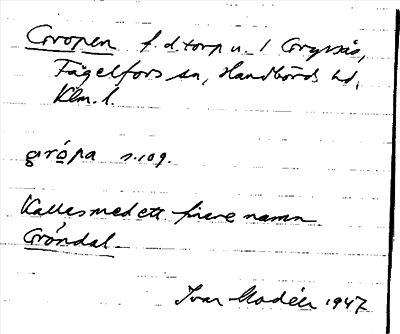 Gropen f. d. torp u. 1 Gryssjö,
Fågelfors sn, Handbörds hd,
Klm. l.
grópa s. 109.
Kallas med ett finare namn
Gröndal.
Ivar Modéer 1947